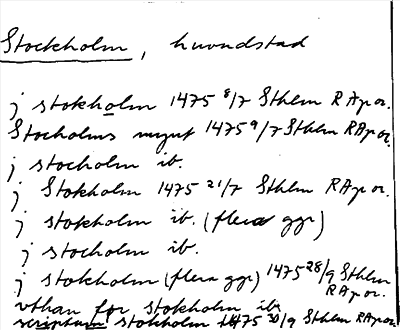 Stockholm, huvudstad
j stokholm 1475 8/7 Sthlm RAp or.
Stocholms mynt 1475 9/7 Sthlm RAp or.
j stocholm ib.
j Stokholm 1475 21/7 Sthlm RAp or.
j stokholm ib. (flera ggr)
j stocholm ib.
j stokholm (flera ggr) 1475 28/9 Sthlm
RAp or.
vthan for stokholm ib.
scriptum stokholm 1475 30/9 Sthlm RAp or.